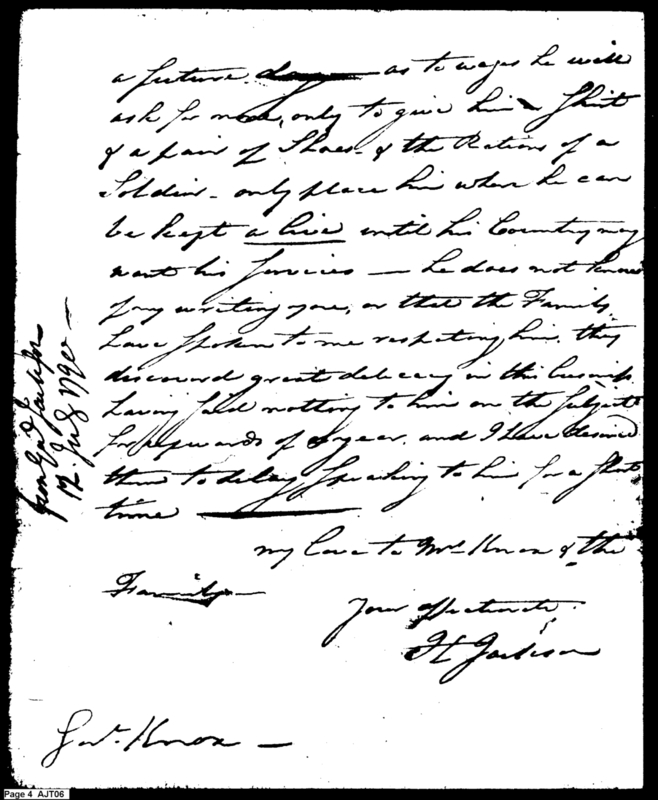 a future day as to wages he will
ask for none, only to give him a Shirt
& a pair of Shoes - & the Rations of a
Soldier - only place him where he can
be kept a live until his Country may
want his Services — he does not know
of my writing you, or that the Family
have spoken to me respecting him, they
discovered great delicacy in this business
having said nothing to him on the Subject
for upwards of a year. and I have desired
them to delay speaking to him for a short
time
my love to Mrs Knox & the
Family —
Your affectionate
H Jackson
Genl. Knox —
from Genl Jackson
12. July 1790 —
Page 4 AJT06